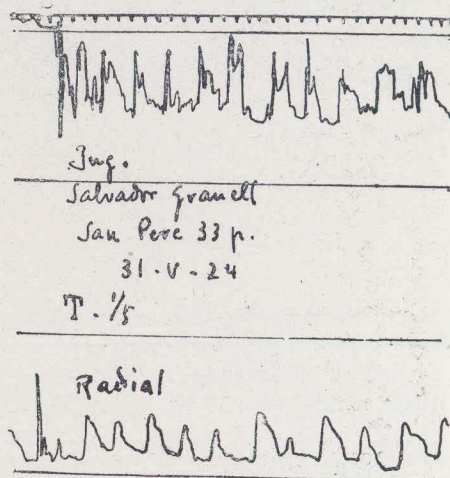 Jug.
Salvador Granell
San Pere 33 p.
31-V-24
T. 1/5
Radial